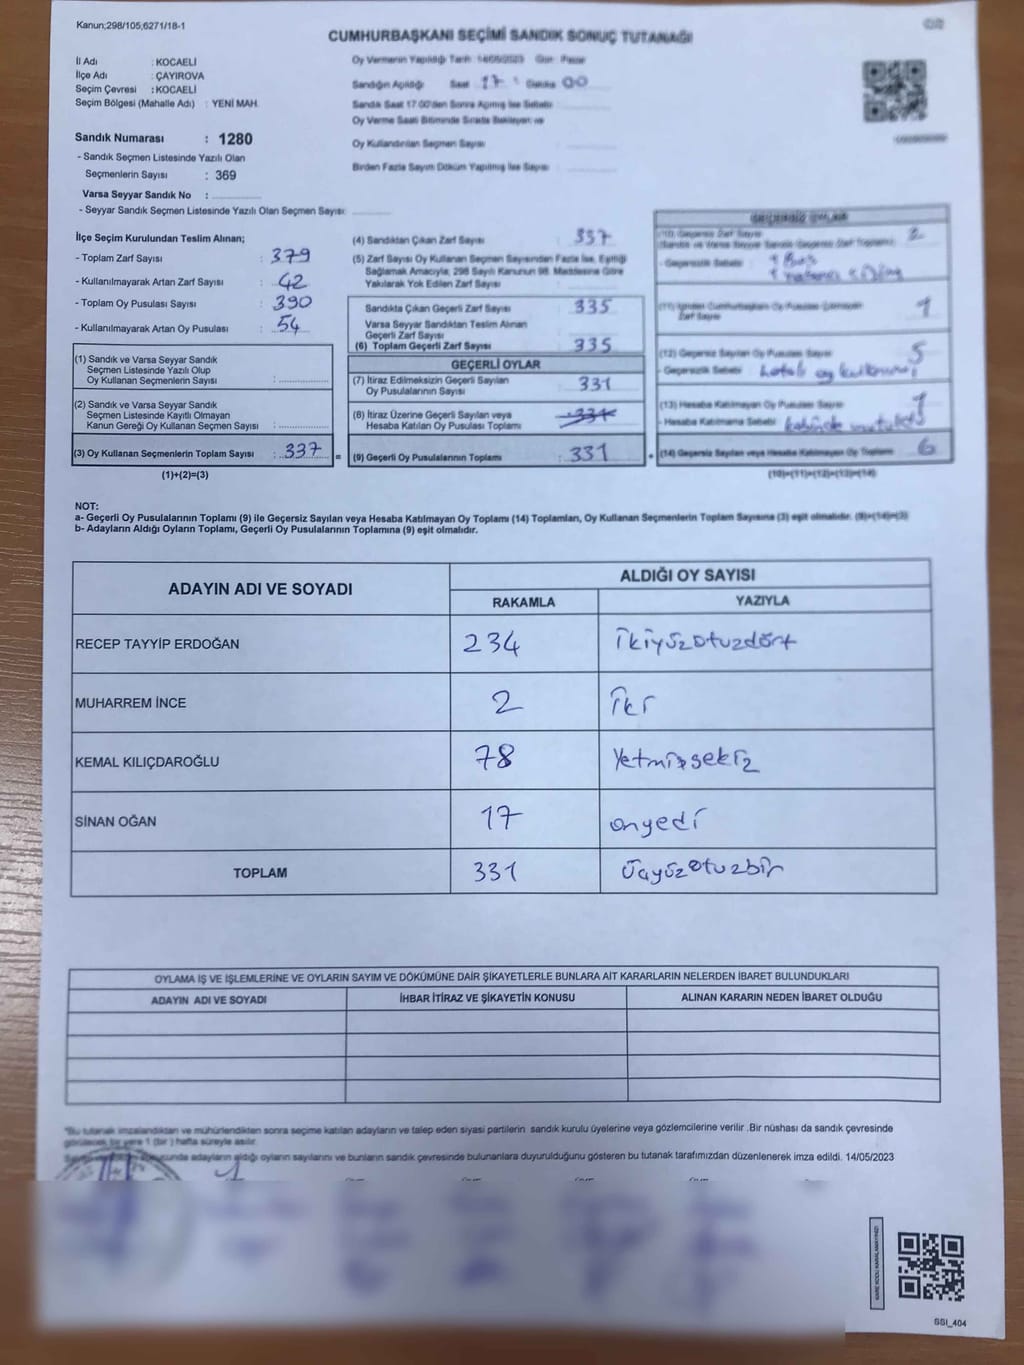 Kanun;298/105,6271/18-1
CUMHURBAŞKANI SEÇİMİ SANDIK SONUÇ TUTANAĞI
İl Adı : KOCAELİ
İlçe Adı : ÇAYIROVA
Seçim Çevresi : KOCAELİ
Seçim Bölgesi (Mahalle Adı) : YENİ MAH.
Sandık Numarası : 1280
- Sandık Seçmen Listesinde Yazılı Olan
Seçmenlerin Sayısı : 369
Varsa Seyyar Sandık No :
- Seyyar Sandık Seçmen Listesinde Yazılı Olan Seçmen Sayısı:
Oy Vermenin Yapıldığı Tarih 14/05/2023 Gün : Pazar
Sandığın Açıldığı Saat 17 : Dakika 00
Sandık Saat 17:00'den Sonra Açılmış İse Sebebi
Oy Verme Saati Bitiminde Sırada Bekleyen ve
Oy Kullandırılan Seçmen Sayısı
Birden Fazla Sayım Döküm Yapılmış İse Sayısı
İlçe Seçim Kurulundan Teslim Alınan;
- Toplam Zarf Sayısı : 379
- Kullanılmayarak Artan Zarf Sayısı : 42
- Toplam Oy Pusulası Sayısı : 390
- Kullanılmayarak Artan Oy Pusulası : 54
(1) Sandık ve Varsa Seyyar Sandık
Seçmen Listesinde Yazılı Olup
Oy Kullanan Seçmenlerin Sayısı :
(2) Sandık ve Varsa Seyyar Sandık
Seçmen Listesinde Kayıtlı Olmayan
Kanun Gereği Oy Kullanan Seçmen Sayısı :
(3) Oy Kullanan Seçmenlerin Toplam Sayısı : 337 =
(1)+(2)=(3)
(4) Sandıktan Çıkan Zarf Sayısı 337
(5) Zarf Sayısı Oy Kullanan Seçmen Sayısından Fazla İse, Eşitliği
Sağlamak Amacıyla; 298 Sayılı Kanunun 98. Maddesine Göre
Yakılarak Yok Edilen Zarf Sayısı
Sandıkta Çıkan Geçerli Zarf Sayısı 335
Varsa Seyyar Sandıktan Teslim Alınan
Geçerli Zarf Sayısı
(6) Toplam Geçerli Zarf Sayısı 335
GEÇERLİ OYLAR
(7) İtiraz Edilmeksizin Geçerli Sayılan
Oy Pusulalarının Sayısı 331
(8) İtiraz Üzerine Geçerli Sayılan veya
Hesaba Katılan Oy Pusulası Toplamı 331
(9) Geçerli Oy Pusulalarının Toplamı 331 +
GEÇERSİZ OYLAR
(10) Geçersiz Zarf Sayısı 2
(Sandık ve Varsa Seyyar Sandık Geçersiz Zarf Toplamı)
- Geçersizlik Sebebi : 1 Boş
Zarf Sayısı 1
(12) Geçersiz Sayılan Oy Pusulası Sayısı 5
- Geçersizlik Sebebi : hatalı oy kullanımı
(13) Hesaba Katılmayan Oy Pusulası Sayısı 1
- Hesaba Katılmama Sebebi : kabinde
(14) Geçersiz Sayılan veya Hesaba Katılmayan Oy Toplamı 6
(10)+(11)+(12)+(13)=(14)
NOT:
a- Geçerli Oy Pusulalarının Toplamı (9) ile Geçersiz Sayılan veya Hesaba Katılmayan Oy Toplamı (14) Toplamları, Oy Kullanan Seçmenlerin Toplam Sayısına (3) eşit olmalıdır. (9)+(14)=(3)
b- Adayların Aldığı Oyların Toplamı, Geçerli Oy Pusulalarının Toplamına (9) eşit olmalıdır.
ADAYIN ADI VE SOYADI ALDIĞI OY SAYISI
RAKAMLA YAZIYLA
RECEP TAYYİP ERDOĞAN 234 ikiyüzotuzdört
MUHARREM İNCE 2 iki
KEMAL KILIÇDAROĞLU 78 Yetmişsekiz
SİNAN OĞAN 17 onyedi
TOPLAM 331 üçyüzotuzbir
OYLAMA İŞ VE İŞLEMLERİNE VE OYLARIN SAYIM VE DÖKÜMÜNE DAİR ŞİKAYETLERLE BUNLARA AİT KARARLARIN NELERDEN İBARET BULUNDUKLARI
ADAYIN ADI VE SOYADI İHBAR İTİRAZ VE ŞİKAYETİN KONUSU ALINAN KARARIN NEDEN İBARET OLDUĞU
*Bu tutanak imzalandıktan ve mühürlendikten sonra seçime katılan adayların ve talep eden siyasi partilerin sandık kurulu üyelerine veya gözlemcilerine verilir .Bir nüshası da sandık çevresinde
görülecek bir yere 1 (bir ) hafta süreyle asılır.
adayların aldığı oyların sayılarını ve bunların sandık çevresinde bulunanlara duyurulduğunu gösteren bu tutanak tarafımızdan düzenlenerek imza edildi. 14/05/2023
SSI_404